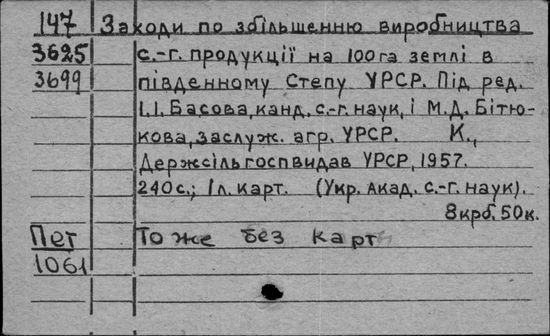 147 Заходи по збільшенню виробництва
3625 с.-г. продукції на 100 га землі в
3699 південному Степу УРСР. Під ред.
І.І. Басова, канд. с.-г. наук, і М.Д. Бітю-
кова, заслуж. агр. УРСР. К.,
Держсільгоспвидав УРСР, 1957.
240 с.; Іл. карт. (Укр. Акад. с.-г. наук).
8 крб. 50 к.
Пет То же без карт
1061